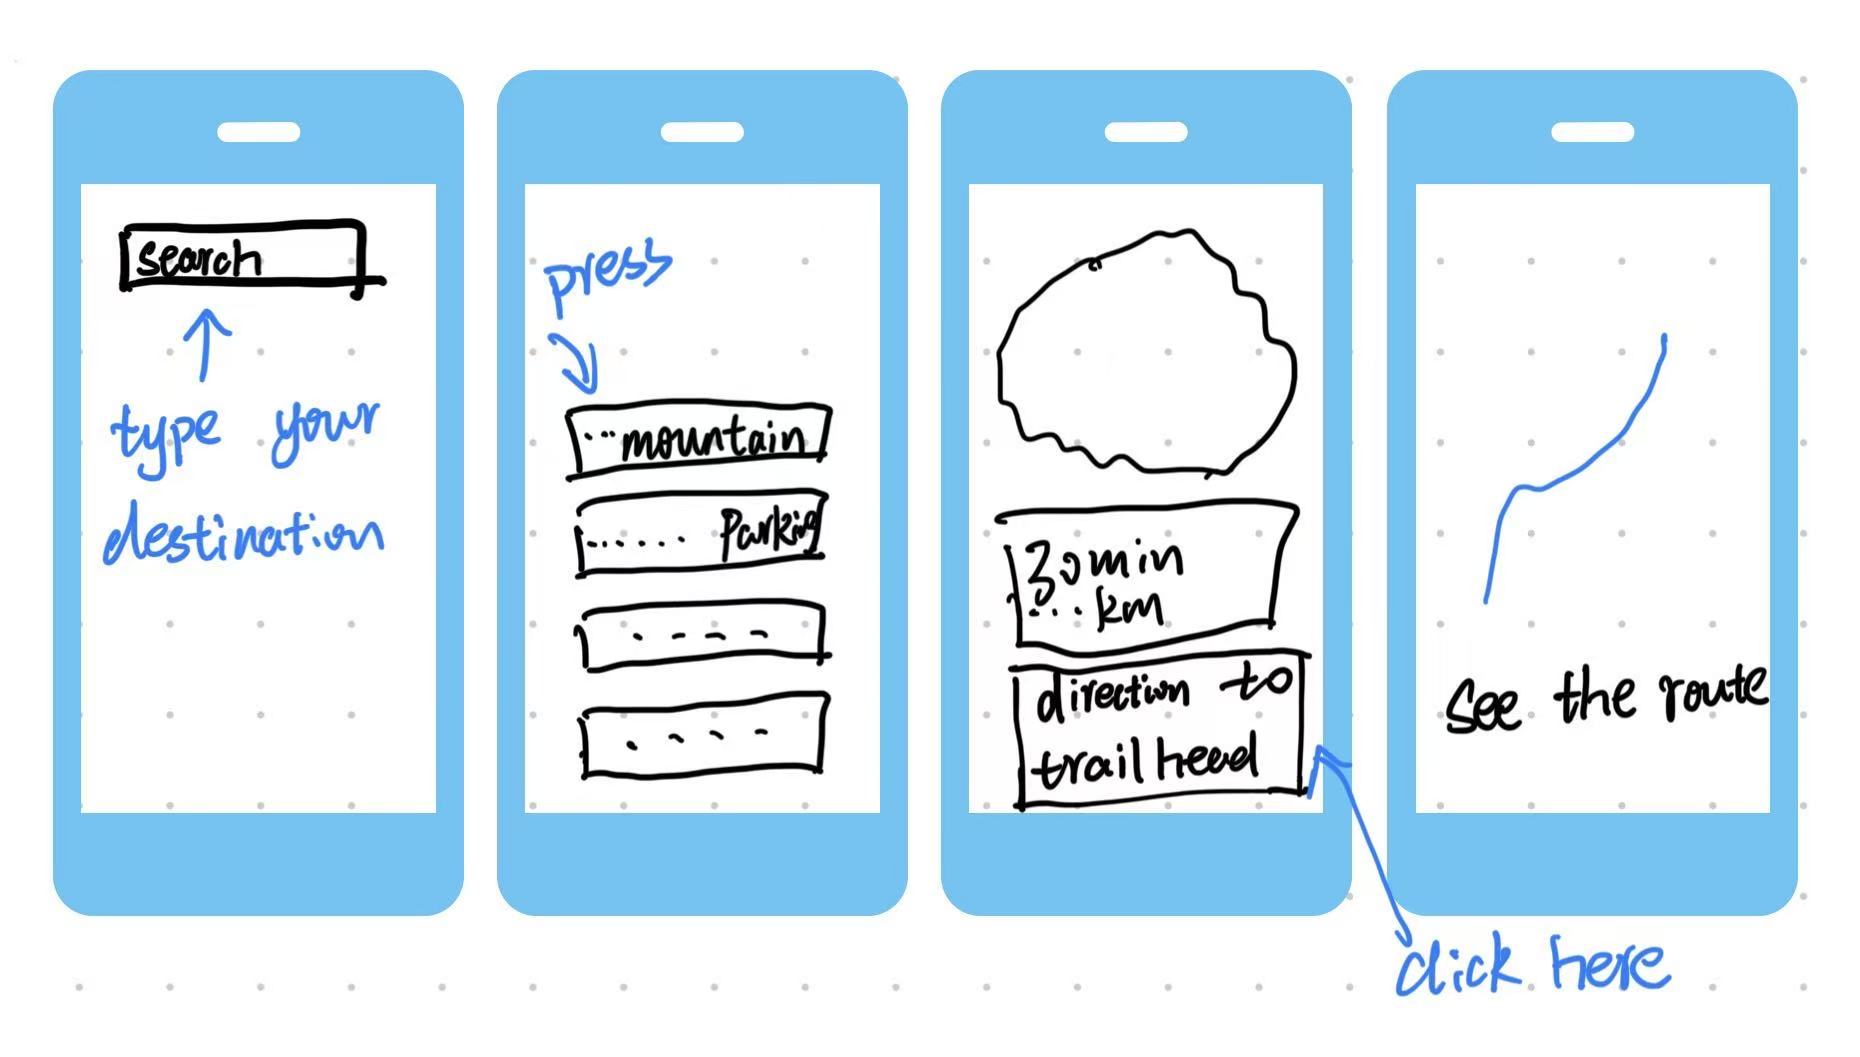 search
type your
destination
press
...mountain
...... Parking
30min
... km
direction to
trail head
click here
See the route